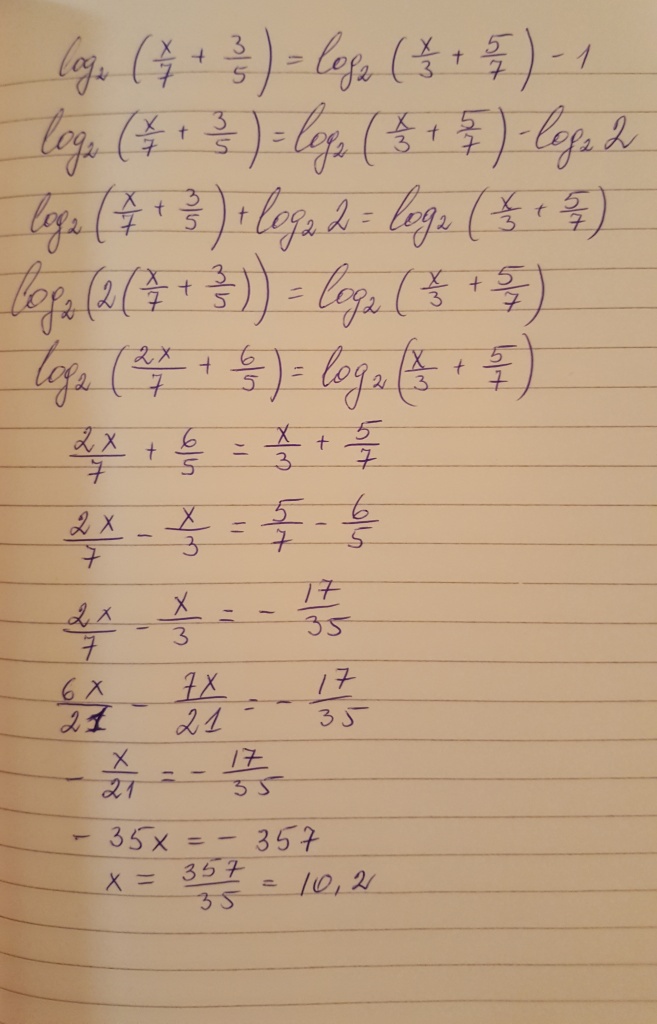 log₂ (x/7 + 3/5) = log₂ (x/3 + 5/7) - 1
log₂ (x/7 + 3/5) = log₂ (x/3 + 5/7) - log₂ 2
log₂ (x/7 + 3/5) + log₂ 2 = log₂ (x/3 + 5/7)
log₂ (2(x/7 + 3/5)) = log₂ (x/3 + 5/7)
log₂ (2x/7 + 6/5) = log₂ (x/3 + 5/7)
2x/7 + 6/5 = x/3 + 5/7
2x/7 - x/3 = 5/7 - 6/5
2x/7 - x/3 = - 17/35
6x/21 - 7x/21 = - 17/35
- x/21 = - 17/35
- 35x = - 357
x = 357/35 = 10,2